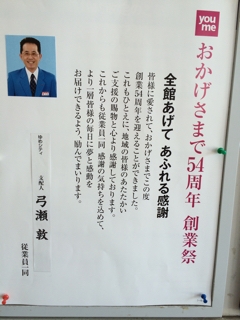 you
me
おかげさまで54周年 創業祭
全館あげて あふれる感謝
皆様に愛されて、おかげさまでこの度
創業54周年を迎えることができました。
これもひとえに、地域の皆様のあたたかい
ご支援の賜物と心より感謝しております。
これからも従業員一同 感謝の気持ちを込めて、
より一層皆様の毎日に夢と感動を
お届けできるよう、励んでまいります。
ゆめシティ
支配人 弓瀬 敦
従業員一同